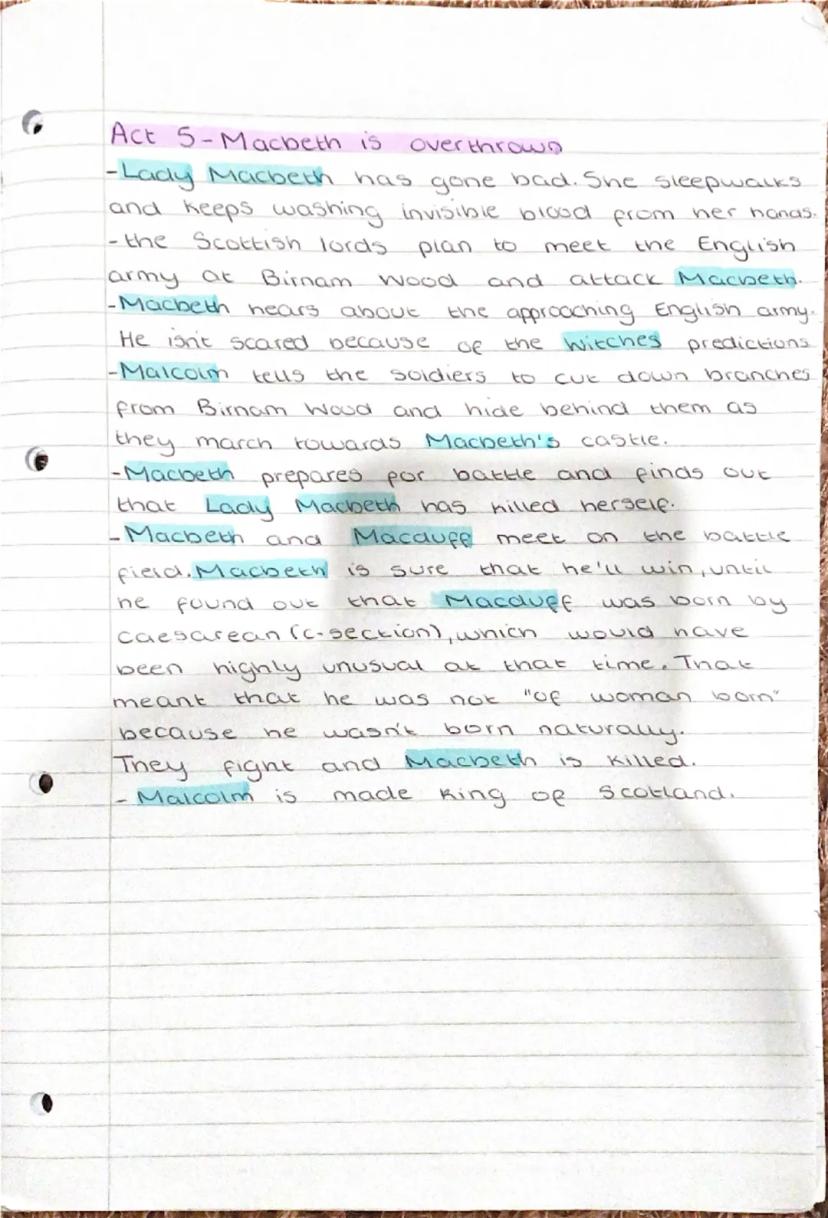 Act 5 - Macbeth is overthrown
-Lady Macbeth has gone bad. She sleepwalks
and keeps washing invisible blood from her hands.
-the Scottish lords plan to meet the English
army at Birnam Wood and attack Macbeth.
-Macbeth hears about the approaching English army.
He isn't scared because of the Witches predictions
-Malcolm tells the soldiers to cut down branches
from Birnam Wood and hide behind them as
they march towards Macbeth's castle.
-Macbeth prepares for battle and finds out
that Lady Macbeth has killed herself.
-Macbeth and Macduff meet on the battle
field. Macbeth is sure that he'll win, until
he found out that Macduff was born by
caesarean (c-section), which would have
been highly unusual at that time. That
meant that he was not "of woman born"
because he wasn't born naturally.
They fight and Macbeth is killed.
- Malcolm is made king of Scotland.